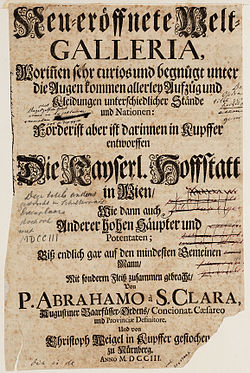 Neu-eröffnete Welt-
GALLERIA,
Woriñen sehr curios und begnügt unter
die Augen kommen allerley Aufzüg und
Kleidungen unterschiedlicher Stände
und Nationen:
Forderist aber ist darinnen in Kupffer
entworffen
Die Kayserl. Hoffstatt
in Wien/
Wie dann auch
Anderer hohen Häupter und
Potentaten;
Biß endlich gar auf den mindesten Gemeinen
Mann/
Mit sonderm Fleiß zusammen gebracht/
Von
P. ABRAHAMO à S. CLARA,
Augustiner Baarfüsser-Ordens/ Concionat. Cæsareo
und Provinciæ Definitore.
Und von
Christoph Weigel in Kupffer gestochen
zu Nürnberg.
ANNO M DCC III.
MDCCIII